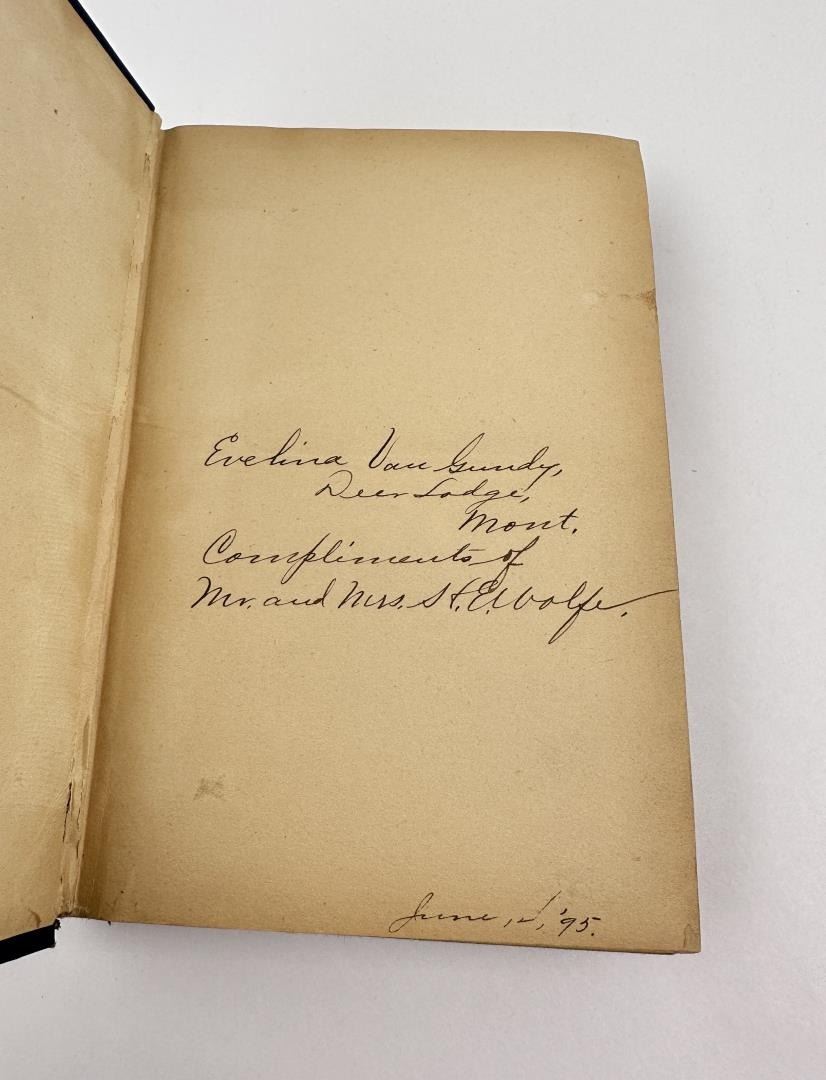 Evelina Van Gundy,
Deer Lodge,
Mont.
Compliments of
Mr. and Mrs. H. E. Wolfe.
June, '95.